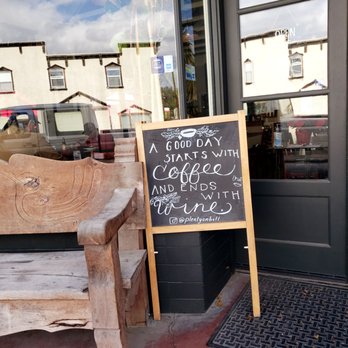 A GOOD DAY
STARTS WITH
Coffee
AND ENDS
WITH
Wine
@plentyonbell
OPEN